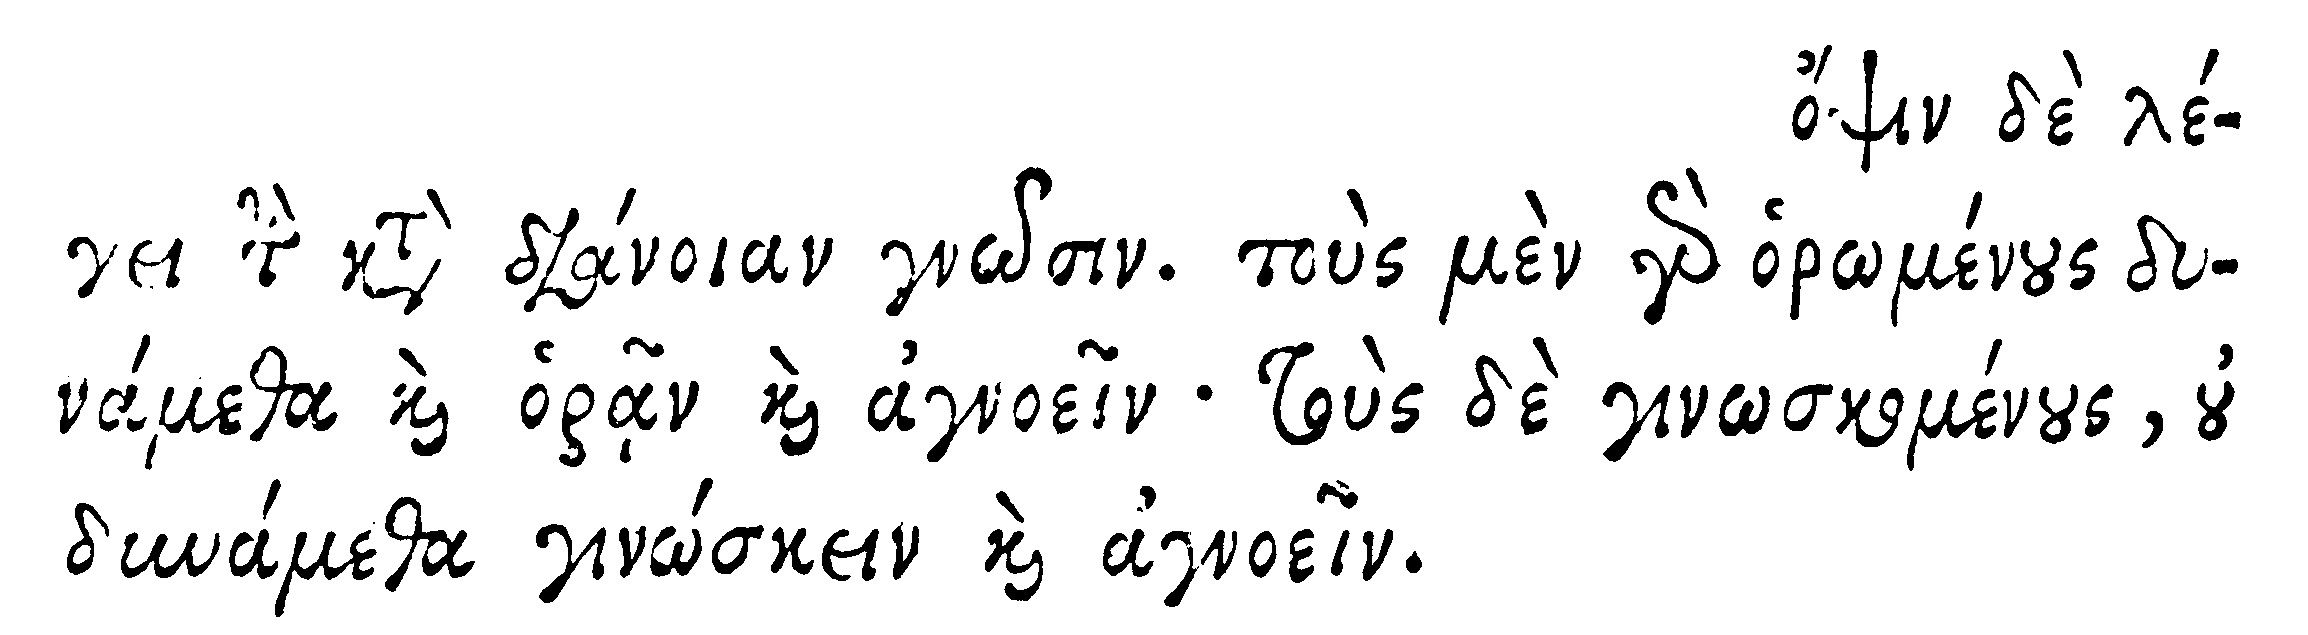 ὄψιν δὲ λέ-
γει τὴν κατὰ διάνοιαν γνῶσιν. τοὺς μὲν γὰρ ὁρωμένους δυ-
νάμεθα καὶ ὁρᾷν καὶ ἀγνοεῖν· τοὺς δὲ γινωσκομένους, οὐ
δυνάμεθα γινώσκειν καὶ ἀγνοεῖν.